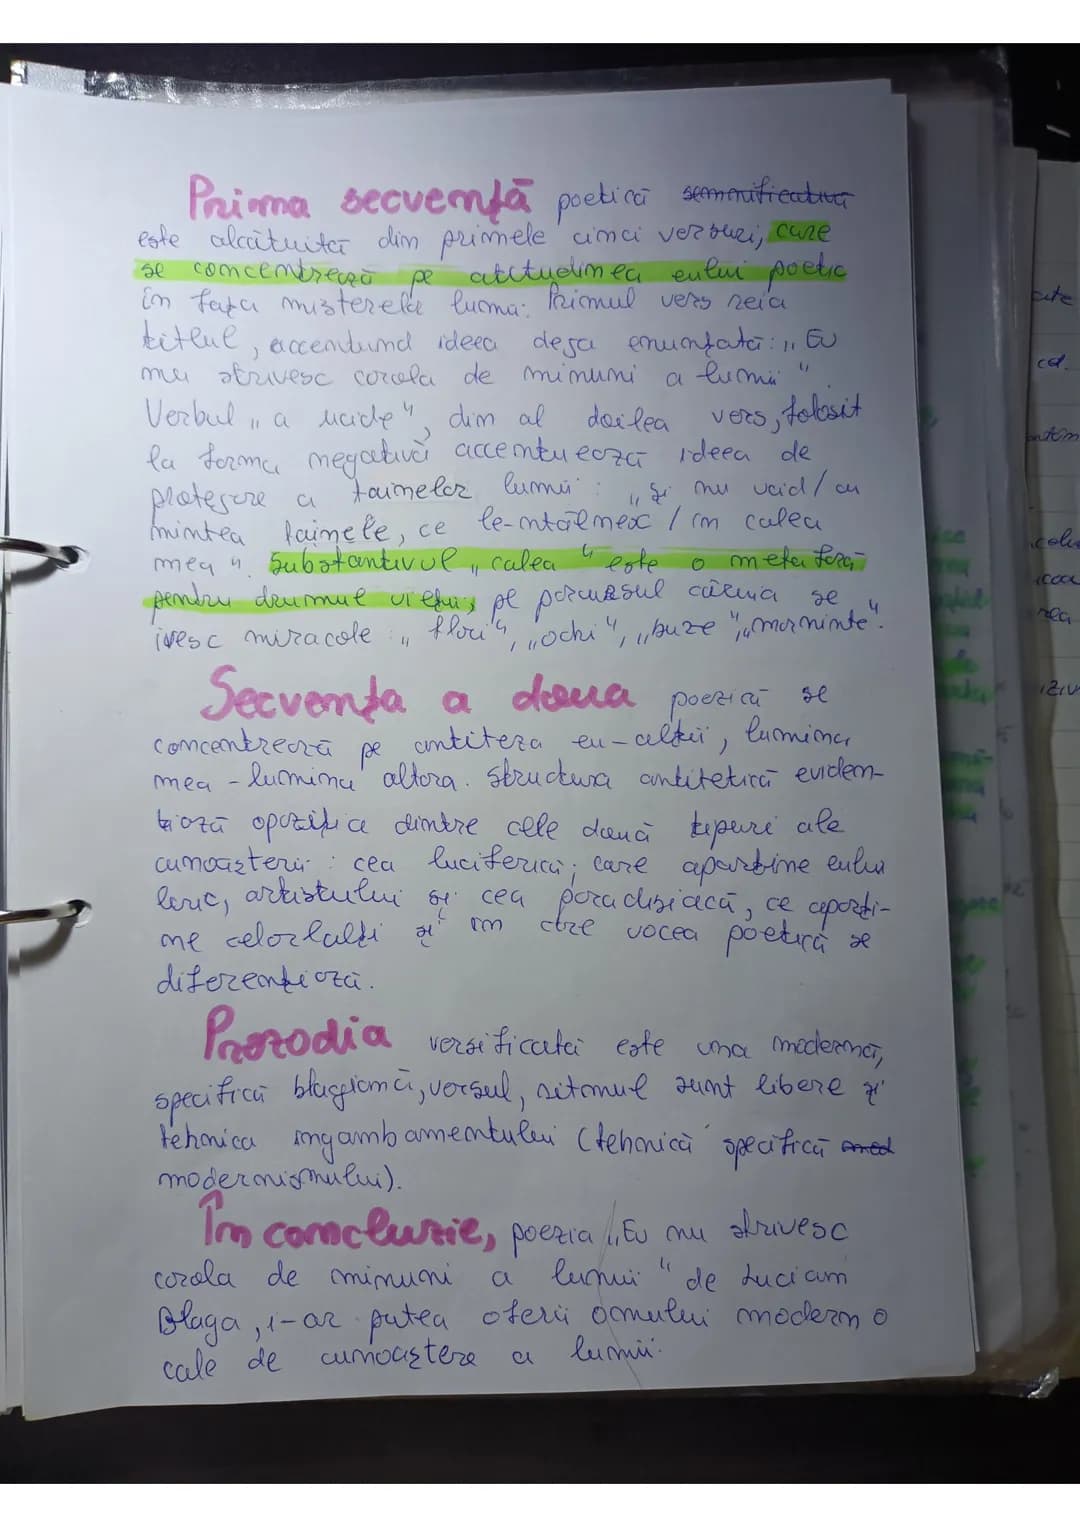 Prima secvență poetică semnificativă
este alcătuită din primele cinci versuri, care
se concentrează pe atitudinea eului poetic
în fața misterelor lumii. Primul vers reia
titlul, accentuând ideea deja enunțată: „Eu
nu strivesc corola de minuni a lumii"
Verbul „a ucide", din al doilea vers, folosit
la forma negativă accentuează ideea de
protejare a tainelor lumii: „și nu ucid/cu
mintea tainele, ce le-ntâlnesc / în calea
mea". Substantivul „calea" este o metaforă
pentru drumul vieții, pe parcursul căruia se
ivesc miracole: „flori", „ochi", „buze", „morminte".
Secvența a doua poezică se
concentrează pe antiteza eu-alții, lumina
mea - lumina altora. Structura antitetică eviden-
țiază opoziția dintre cele două tipuri ale
cunoașterii: cea luciferică, care aparține eului
liric, artistului și cea paradisiacă, ce aparți-
ne celorlalți și în care vocea poetică se
diferențiază.
Prozodia versificației este una modernă,
specifică blagiană, versul, ritmul sunt libere și
tehnica ingambamentului (tehnică specifică mod
modernismului).
În concluzie, poezia „Eu nu strivesc
corola de minuni a lumii" de Lucian
Blaga, i-ar putea oferii omului modern o
cale de cunoaștere a lumii.